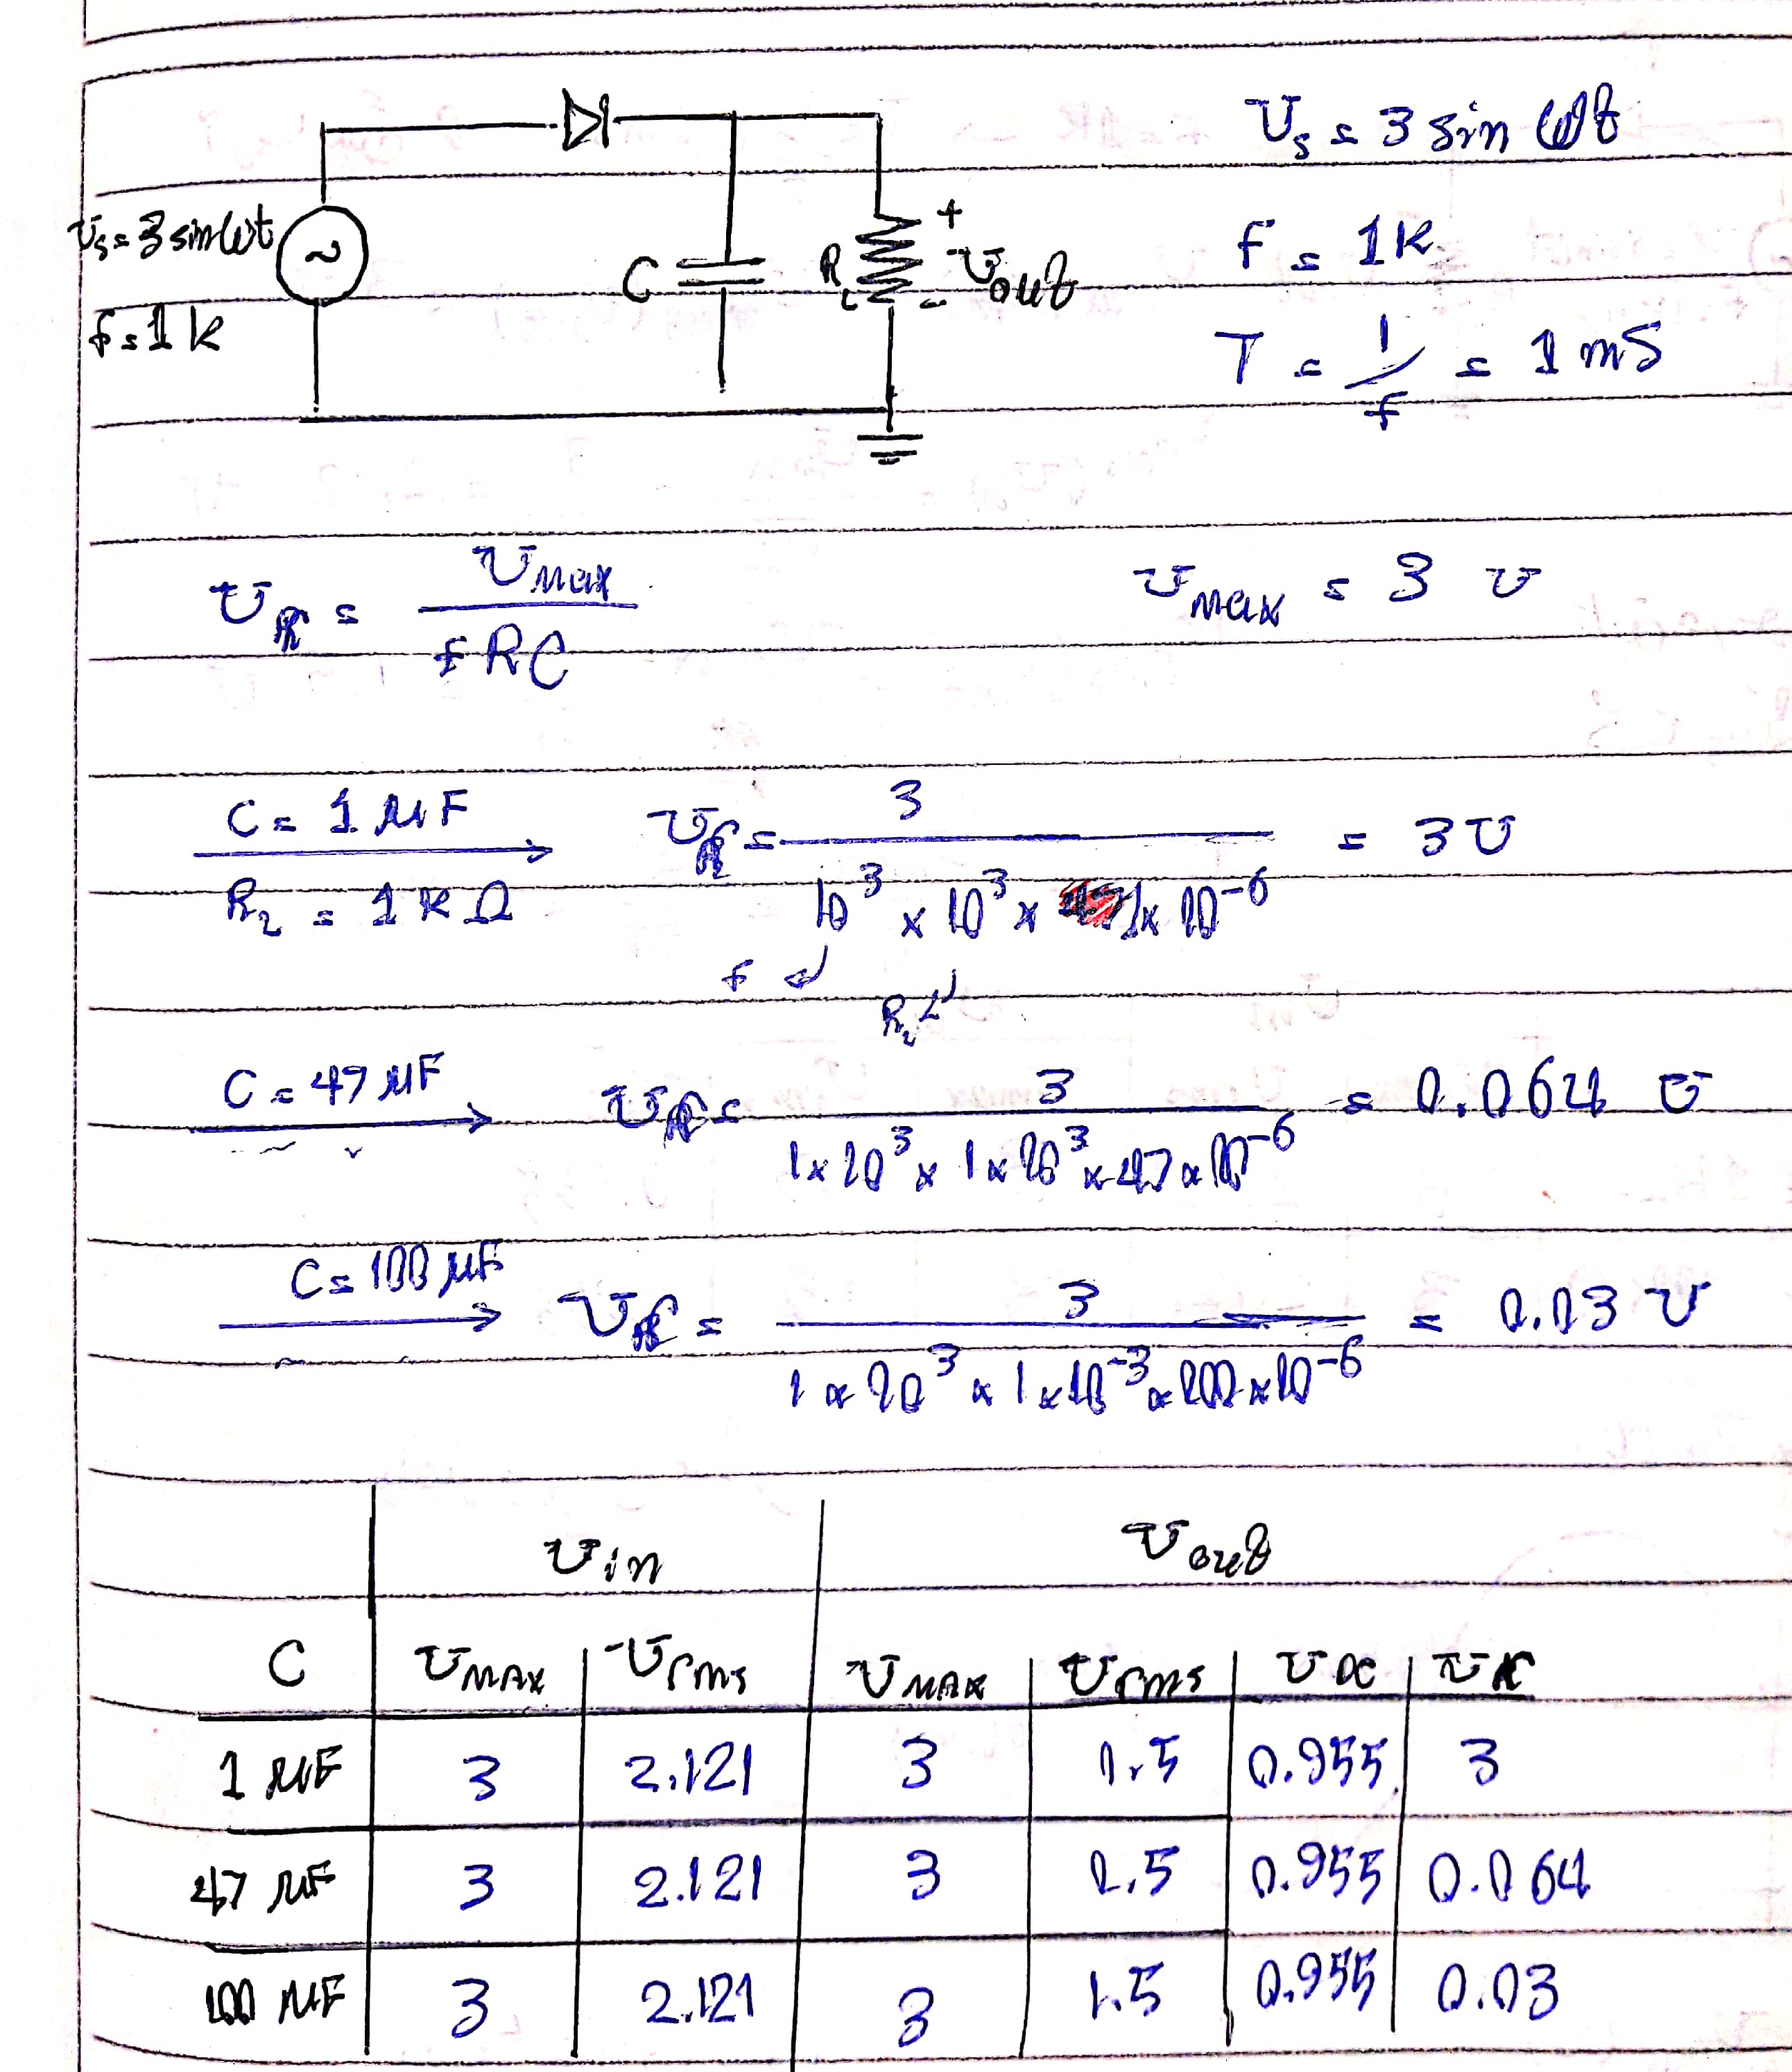 υs = 3 sin ωt
f = 1 k
C
RL
+
υout
-
υs = 3 sin ωt
f = 1K
T = 1/f = 1 mS
υr = υmax / fRC
υmax = 3 υ
C = 1 μF
RL = 1 KΩ
υr = 3 / 10³ × 10³ × 1 × 10⁻⁶ = 3 υ
f
RL
C = 47 μF
υr = 3 / 1×10³ × 1×10³ × 47×10⁻⁶ = 0.064 υ
C = 100 μF
υr = 3 / 1×10³ × 1×10⁻³ × 100×10⁻⁶ = 0.03 υ
υin υout
C υMAX υrms υMAX υrms υDC υr
1 μF 3 2.121 3 1.5 0.955 3
47 μF 3 2.121 3 1.5 0.955 0.064
100 μF 3 2.121 3 1.5 0.955 0.03